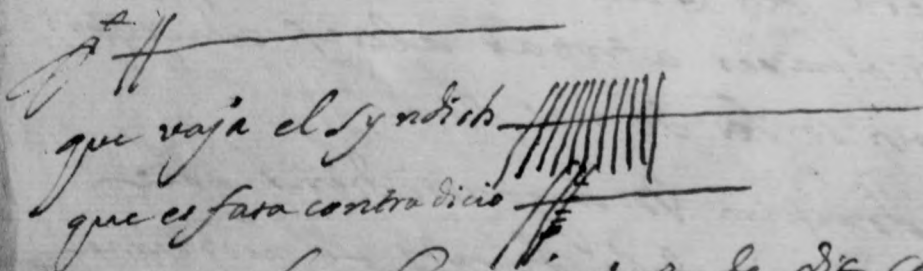 que vaja el syndich
que es fasa contradicio